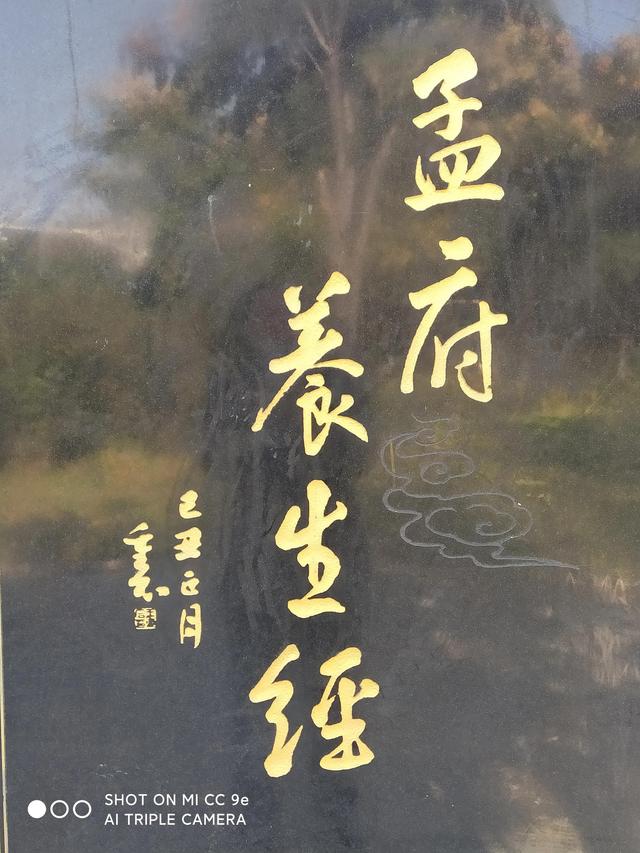 孟府
養生經
己丑正月
SHOT ON MI CC 9e
AI TRIPLE CAMERA